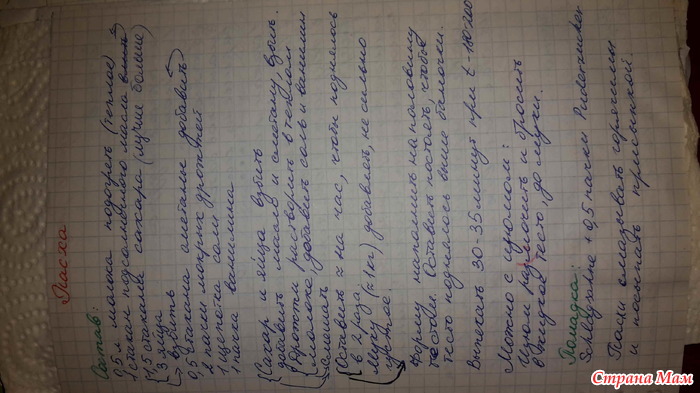 Пасха
Состав:
0,5 л молока подогреть (теплое)
1 стакан подсолнечного масла влить
1,5 стакана сахара (лучше больше)
3 яйца взбить
0,5 стакана сметаны добавить
2 пачки мокрых дрожжей
1 щепотка соли
1 пачка ванилина
Сахар и яйца взбить
добавить масло и сметану, взбить.
Дрожжи растворить в теплом
молоке, добавить соль и ванилин
смешать
Оставить ≈ на час, чтобы поднялось
в 2 раза
Муку (≈1кг) добавлять, не сильно
густое.
Форму наполнить наполовину
тестом. Оставить постоять, чтобы
тесто поднялось выше баночки.
Выпекать 30-35 минут при t-180-200
Можно с изюмом:
Изюм размочить и бросить
в жидкое тесто, до муки.
Помадка:
Schlagsahne + 0,5 пачки Puderzucker
Паски смазывать горячими
и посыпать присыпкой.
Страна Мам